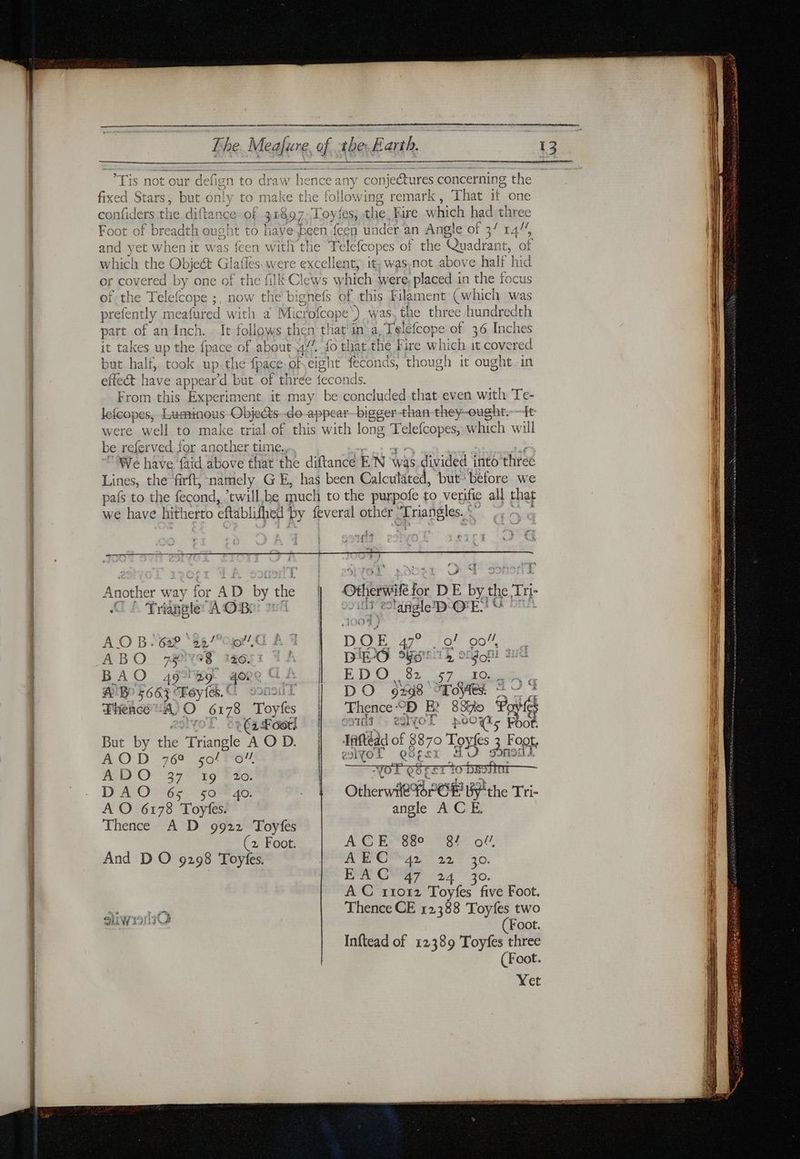 The Meaſure of the Earth. 13
'Tis not our deſign to draw hence any conjectures concerning the
fixed Stars, but only to make the following remark, That if one
conſiders the diſtance of 31897 Toyſes, the Fire which had three
Foot of breadth ought to have been ſeen under an Angle of 3′ 14″,
and yet when it was ſeen with the Teleſcopes of the Quadrant, of
which the Object Glaſſes were excellent, it was not above half hid
or covered by one of the ſilk Clews which were placed in the focus
of the Teleſcope ; now the bigneſs of this Filament (which was
preſently meaſured with a Microſcope) was the three hundredth
part of an Inch. It follows then that in a Teleſcope of 36 Inches
it takes up the ſpace of about 4″. ſo that the Fire which it covered
but half, took up the ſpace of eight ſeconds, though it ought in
effect have appear'd but of three ſeconds.
From this Experiment it may be concluded that even with Te-
leſcopes, Luminous Objects do appear bigger than they ought. It
were well to make trial of this with long Teleſcopes, which will
be reſerved for another time.
We have ſaid above that the diſtance E N was divided into three
Lines, the firſt, namely G E, has been Calculated, but before we
paſs to the ſecond, 'twill be much to the purpoſe to verifie all that
we have hitherto eſtabliſhed by ſeveral other Triangles.
Another way for A D by the
Triangle A O B.
A O B 62° 22′ 0″.
A B O 75 8 20.
B A O
A B 5663 Toyſes.
Thence A O 6178 Toyſes
(2 Foot.
But by the Triangle A O D.
A O D 76° 50′ 0″.
A D O 37 19 20.
D A O 65 50 40.
A O 6178 Toyſes.
Thence A D 9922 Toyſes
(2 Foot.
And D O 9298 Toyſes.
Otherwiſe for D E by the Tri-
angle D O E.
D O E 47° 0′ 00″,
D E O
E D O 82 57 10.
D O 9298 Toyſes.
Thence D E 8870 Toyſes
Foot.
Inſtead of 8870 Toyſes 3 Foot.
Otherwiſe for C E by the Tri-
angle A C E.
A C E 88° 8′ 0″,
A E C 42 22 30.
E A C 47 24 30.
A C 11012 Toyſes five Foot.
Thence CE 12388 Toyſes two
(Foot.
Inſtead of 12389 Toyſes three
(Foot.
Yet